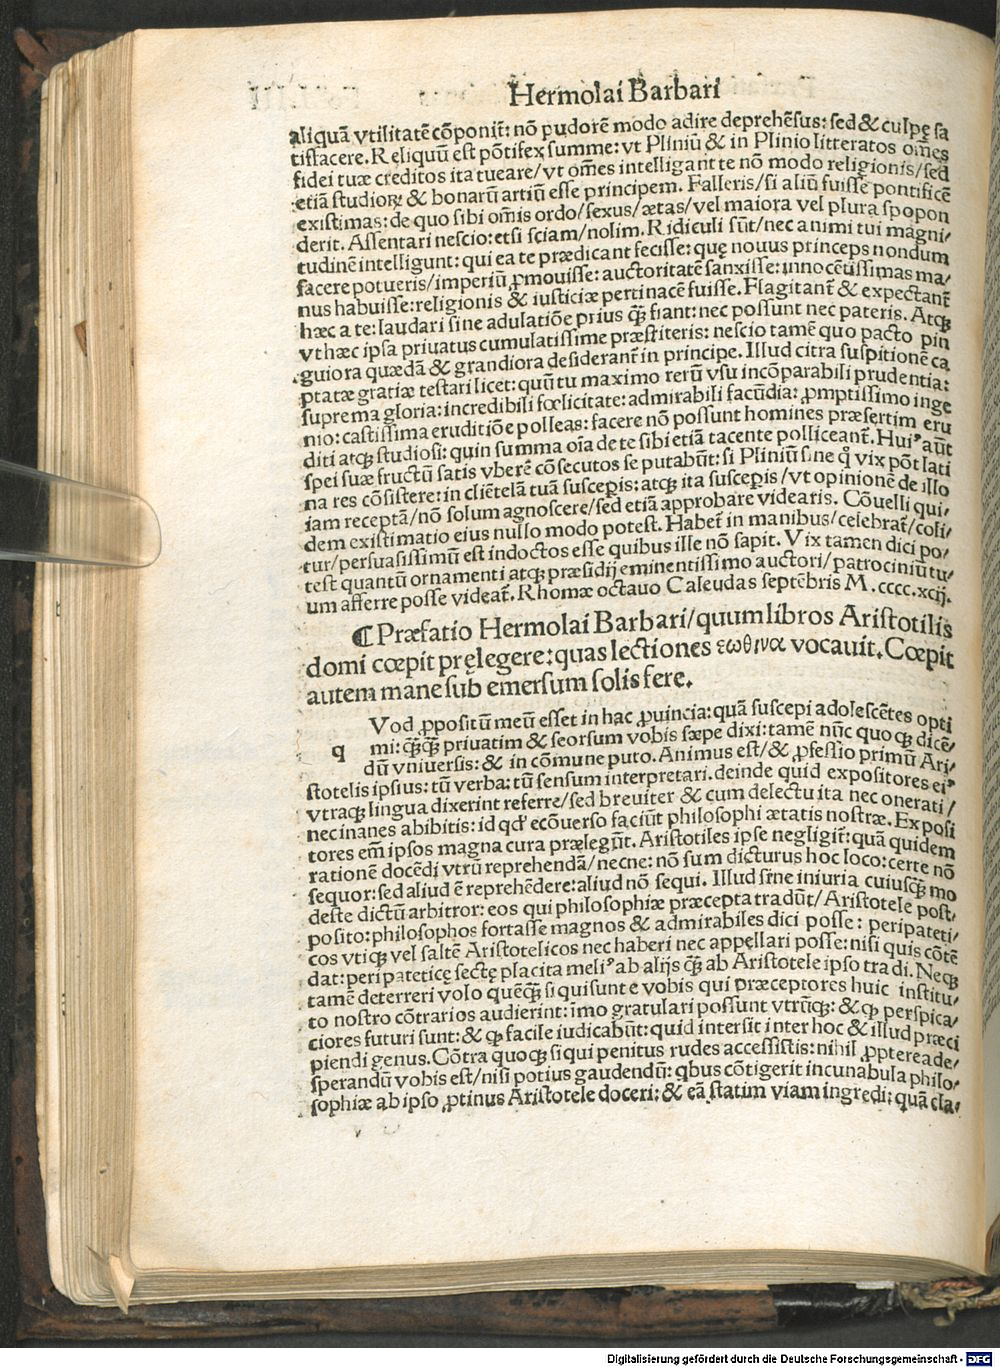 Hermolai Barbari
aliquã vtilitatẽ cõponit᷑: nõ pudorẽ modo adire deprehẽsus: sed & culpę sa
tisfacere. Reliquũ est põtifex summe: vt Pliniũ & in Plinio litteratos om̃es
fidei tuæ creditos ita tueare/vt om̃es intelligant te nõ modo religionis/sed
etiã studioꝝ & bonarũ artiũ esse principem. Falleris/si aliũ fuisse pontificẽ
existimas: de quo sibi om̃is ordo/sexus/ætas/vel maiora vel plura spopon
derit. Assentari nescio: etsi sciam/nolim. Ridiculi sũt/nec animi tui magni/
tudinẽ intelligunt: qui ea te prædicant fecisse: quę nouus princeps nondum
facere potueris/imperiũ ꝓmouisse: auctoritatẽ sanxisse: innocẽtissimas ma/
nus habuisse: religionis & iusticiæ pertinacẽ fuisse. Flagitant᷑ & expectant᷑
hæc a te: laudari sine adulatiõe prius q̃ꝫ fiant: nec possunt nec pateris. Atqꝫ
vt hæc ipsa priuatus cumulatissime præstiteris: nescio tamẽ quo pacto pin
guiora quædã & grandiora desiderant᷑ in principe. Illud citra suspitionẽ ca
ptatæ gratiæ testari licet: quũ tu maximo rerũ vsu incõparabili prudentia:
suprema gloria: incredibili fœlicitate: admirabili facũdia: ꝓmptissimo inge
nio: castissima eruditiõe polleas: facere nõ possunt homines præsertim eru
diti atqꝫ studiosi: quin summa oĩa de te sibi etiã tacente polliceant᷑. Huiꝰ aũt
spei suæ fructũ satis vberẽ cõsecutos se putabũt: si Pliniũ sine q̊ vix põt lati
na res cõsistere: in cliẽtelã tuã susceperis: atqꝫ ita susceperis/vt opinionẽ de illo
iam receptã/nõ solum agnoscere/sed etiã approbare videaris. Cõuelli qui/
dem existimatio eius nullo modo potest. Habet᷑ in manibus/celebrat᷑/coli/
tur/persuasissimũ est indoctos esse quibus ille nõ sapit. Vix tamen dici po/
test quantũ ornamenti atqꝫ præsidij eminentissimo auctori/patrociniũ tu/
um afferre posse videat᷑. Rhomæ octauo Caleudas septẽbris M.cccc.xcij.
¶Præfatio Hermolai Barbari/quum libros Aristotilis
domi cœpit pręlegere: quas lectiones εωθινα vocauit. Cœpit
autem mane sub emersum solis fere.
q Vod ꝓpositũ meũ esset in hac ꝓuincia: quã suscepi adolescẽtes opti
mi: q̃ꝫq̃ꝫ priuatim & seorsum vobis sæpe dixi: tamẽ nũc quoqꝫ dicẽ/
dũ vniuersis: & in cõmune puto. Animus est/& ꝓfessio primũ Ari/
stotelis ipsius: tũ verba: tũ sensum interpretari. deinde quid expositores eiꝰ
vtraqꝫ lingua dixerint referre/sed breuiter & cum delectu ita nec onerati/
nec inanes abibitis: id qd' ecõuerso faciũt philosophi ætatis nostræ. Exposi
tores em̃ ipsos magna cura prælegũt. Aristotiles ipse negligit᷑: quã quidem
rationẽ docẽdi vtrũ reprehendã/necne: nõ sum dicturus hoc loco: certe nõ
sequor: sed aliud ẽ reprehẽdere: aliud nõ sequi. Illud sine iniuria cuiusq̃ꝫ mo
deste dictũ arbitror: eos qui philosophiæ præcepta tradũt/Aristotele post/
posito: philosophos fortasse magnos & admirabiles dici posse: peripateti/
cos vtiqꝫ vel saltẽ Aristotelicos nec haberi nec appellari posse: nisi quis cõtẽ
dat: peripateticę sectę placita meliꝰ ab alijs q̃ꝫ ab Aristotele ipso tradi. Neqꝫ
tamẽ deterreri volo quẽq̃ꝫ si qui sunt e vobis qui præceptores huic institu/
to nostro cõtrarios audierint: imo gratulari possunt vtrũqꝫ: & ꝙ perspica/
ciores futuri sunt: & ꝙ facile iudicabũt: quid intersit inter hoc & illud præci
piendi genus. Cõtra quoqꝫ si qui penitus rudes accessistis: nihil ꝓpterea de/
sperandũ vobis est/nisi potius gaudendũ: qbus cõtigerit incunabula philo/
sophiæ ab ipso ꝓtinus Aristotele doceri: & eã statim viam ingredi: quã cla/
Digitalisierung gefördert durch die Deutsche Forschungsgemeinschaft - DFG